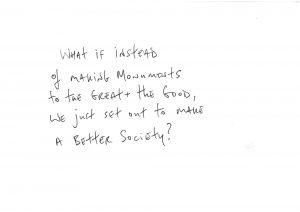 WHAT if iNSTEAD
of MAKING MONUMENTS
to THE GREAT + THE GOOD,
WE just SET OUT TO MAKE
A BETTER SOCIETY?